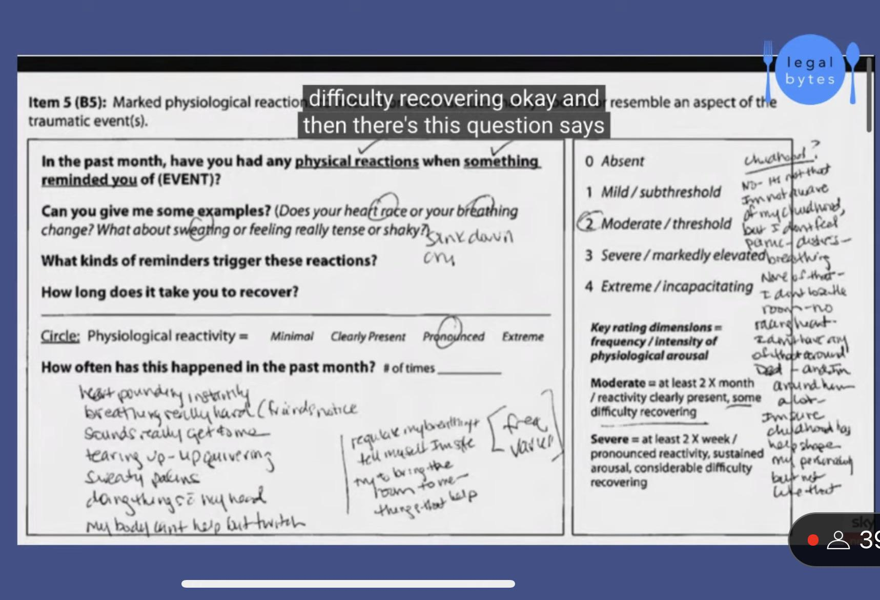 legal
bytes
difficulty recovering okay and
then there's this question says
Item 5 (B5): Marked physiological reaction resemble an aspect of the
traumatic event(s).
In the past month, have you had any physical reactions when something
reminded you of (EVENT)?
Can you give me some examples? (Does your heart race or your breathing
change? What about sweating or feeling really tense or shaky?)
sink down
cry
What kinds of reminders trigger these reactions?
How long does it take you to recover?
Circle: Physiological reactivity = Minimal Clearly Present Pronounced Extreme
How often has this happened in the past month? # of times
heart pounding instantly
breathing really hard (friends notice
sounds really get to me
tearing up - up quivering
sweaty palms
doing things c my head
my body can't help but twitch
regulate my breathing
tell myself I'm safe
try to bring the
room to me -
things that help
[freq
varies]
0 Absent
1 Mild / subthreshold
2 Moderate / threshold
3 Severe / markedly elevated
4 Extreme / incapacitating
Key rating dimensions =
frequency / intensity of
physiological arousal
Moderate = at least 2 X month
/ reactivity clearly present, some
difficulty recovering
Severe = at least 2 X week /
pronounced reactivity, sustained
arousal, considerable difficulty
recovering
childhood?
No - its not that
I'm not aware
of my childhood,
but I dont feel
panic - distress -
breathing
None of that -
I dont lose the
room - no
racing heart -
I don't have any
of that around
Dad - and I'm
around him
a lot -
I'm sure
childhood has
help shape
my personality
but not
like that
sky
39